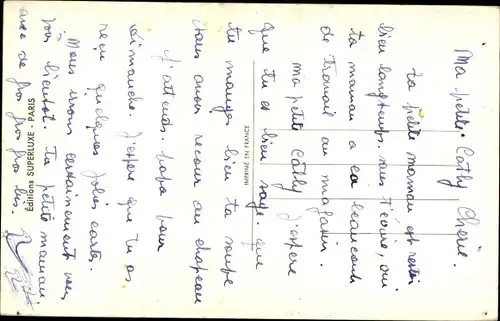 Ma petite Cathy Chérie.
ta petite maman est resté
bien longtemps sans t'écrire, oui
ta maman a eu beaucoup
de travail au magasin.
ma petite Cathy j'espère
que tu es bien sage. que
tu manges bien ta soupe
nous avons recour au chapeau
j'attends. papa pour
dimanche. j'espère que tu as
reçu quelques jolies carte.
Nous irons certainement vous
voir bientot. ta petite maman
avec de gros gros gros bis.
Editions SUPERLUXE, PARIS
IMPRIMÉ EN FRANCE